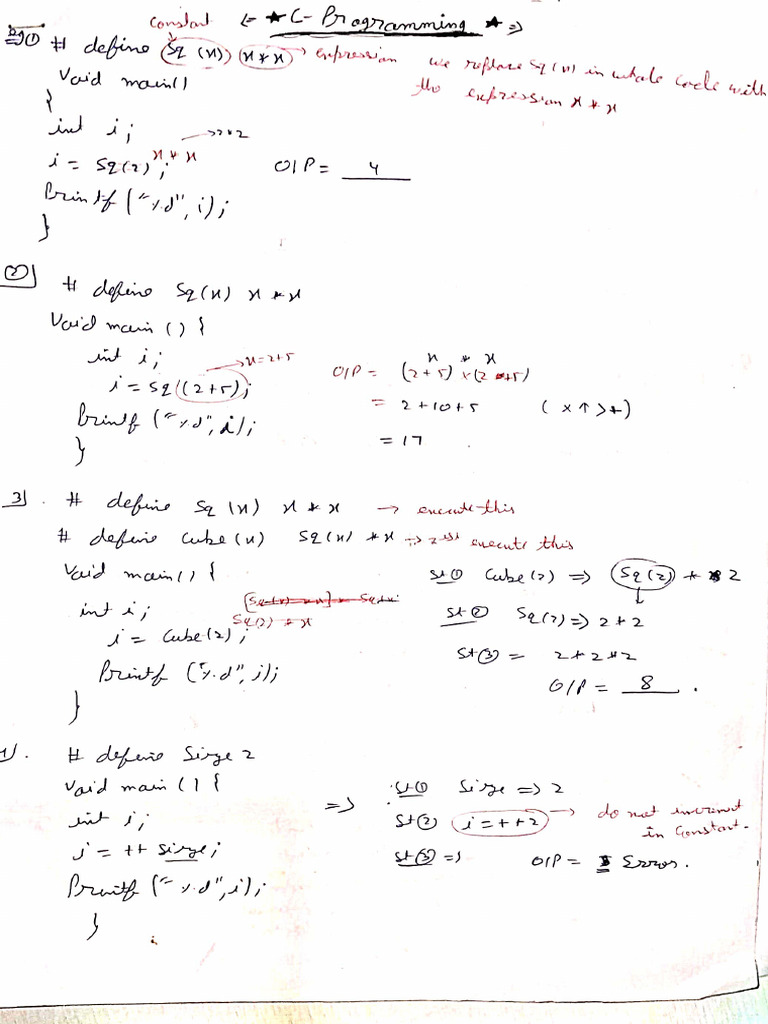 constant <= * C-Programming * =>
# define Sq (x) x * x -> expression we replace Sq(x) in whole code with
the expression x * x
void main()
{
int i;
i = Sq(2); x * x -> 2*2 O/P = 4
Printf ("%d", i);
}
2) # define Sq(x) x * x
void main () {
int i; -> x = 2+5
i = Sq((2+5); O/P = (2+5) x (2 +5) x * x
= 2+10+5 ( x ↑ > +)
Printf ("%d", i);
= 17
}
3). # define Sq (x) x * x -> execute this
# define Cube(x) Sq(x) * x -> execute this
void main() { St① Cube(2) => Sq(2) * 2
int i; Sq(2) * x
i = Cube(2); St② Sq(2) => 2*2
St③ = 2*2*2
Printf ("%d", i);
O/P = 8 .
}
# define Sirze 2
void main () { => St① Sirze => 2
int i; St② i = ++2 -> do not increment
in Constant.
i = ++ Sirze; St③ => O/P = Error.
Printf ("%d", i);
}